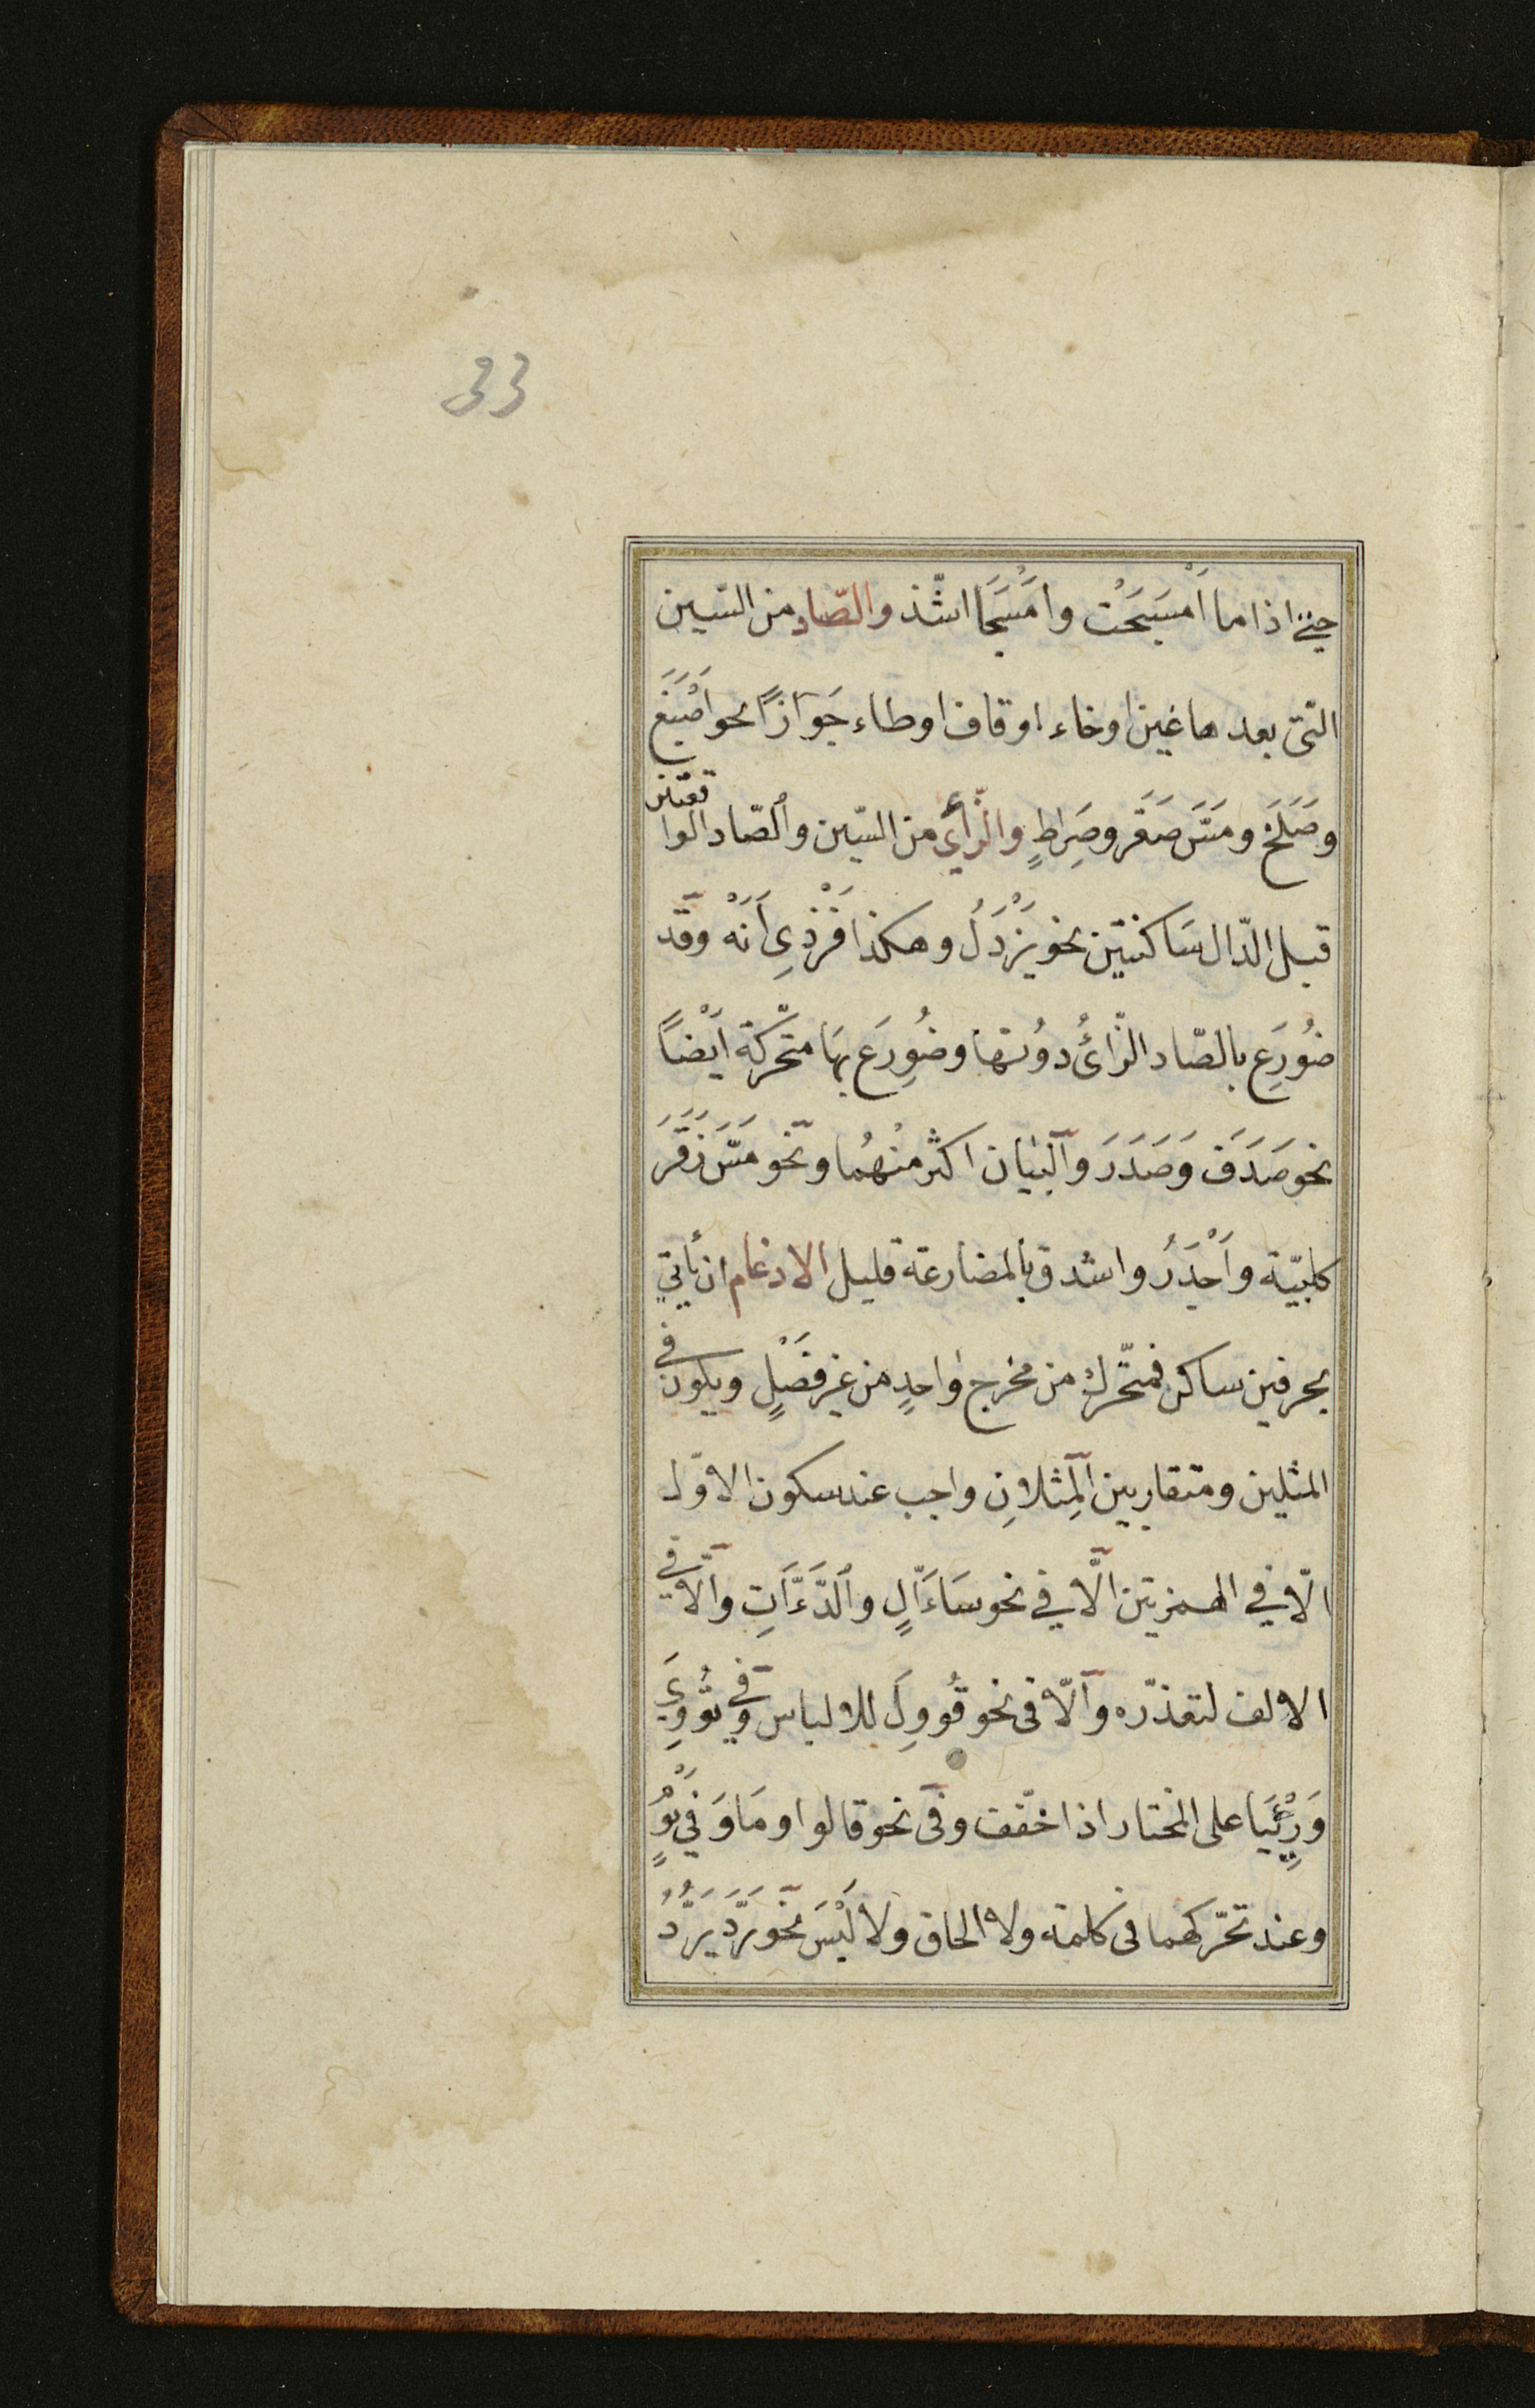 33
حتّى اذا ما اَمْسَجَتْ وامْسَجَا اشّذ والصّاد من السّين
التى بعدها غين اوخاء اوقاف اوطاء جَوَازًا نحو اَصْبَغَ
وصَلَخَ ومَسَّ صَقَر وصِرَاطٍ والزّاْي من السّين والصّاد الواقعتين
قبل الدّال سَاكنتين نحو يَزْدَلُ وهكذا فَزْدِى اَنَهْ وقد
ضُورِع بالصّاد الزّائُ دوُنها وضُورِعَ بهَا متحّركة اَيْضًا
نحو صَدَقَ وَصَدَرَ والبَيَان اكثر منْهُما ونحو مَسَّ زَقَرَ
كلبيّة واَجْدَرُ واشدق بالمضارعة قليل الادغام ان يأتي
بحرفين ساكن فمتحّرك من مخرج وٰاحدٍ من غير فَصْلٍ ويكون فى
المثلين ومتقاربين المِثلانِ واجب عند سكون الاوّل
الّا في الهمزتين الّا في نحو سَاءَّالٍ والدَّءَّاتِ والّا فى
الالف لتعذّره والّا فى نحو قُووِلَ للالباس وفى تُووِىَ
وَرِئْيَا على المختار اذا خفّفت وفى نحو قالوا ومَا وَفِي يَوْمٍ
وعند تحّركهما فى كلمة ولا الحاق ولا لَبْسَ نحو رَدَّ يَرُدُّ